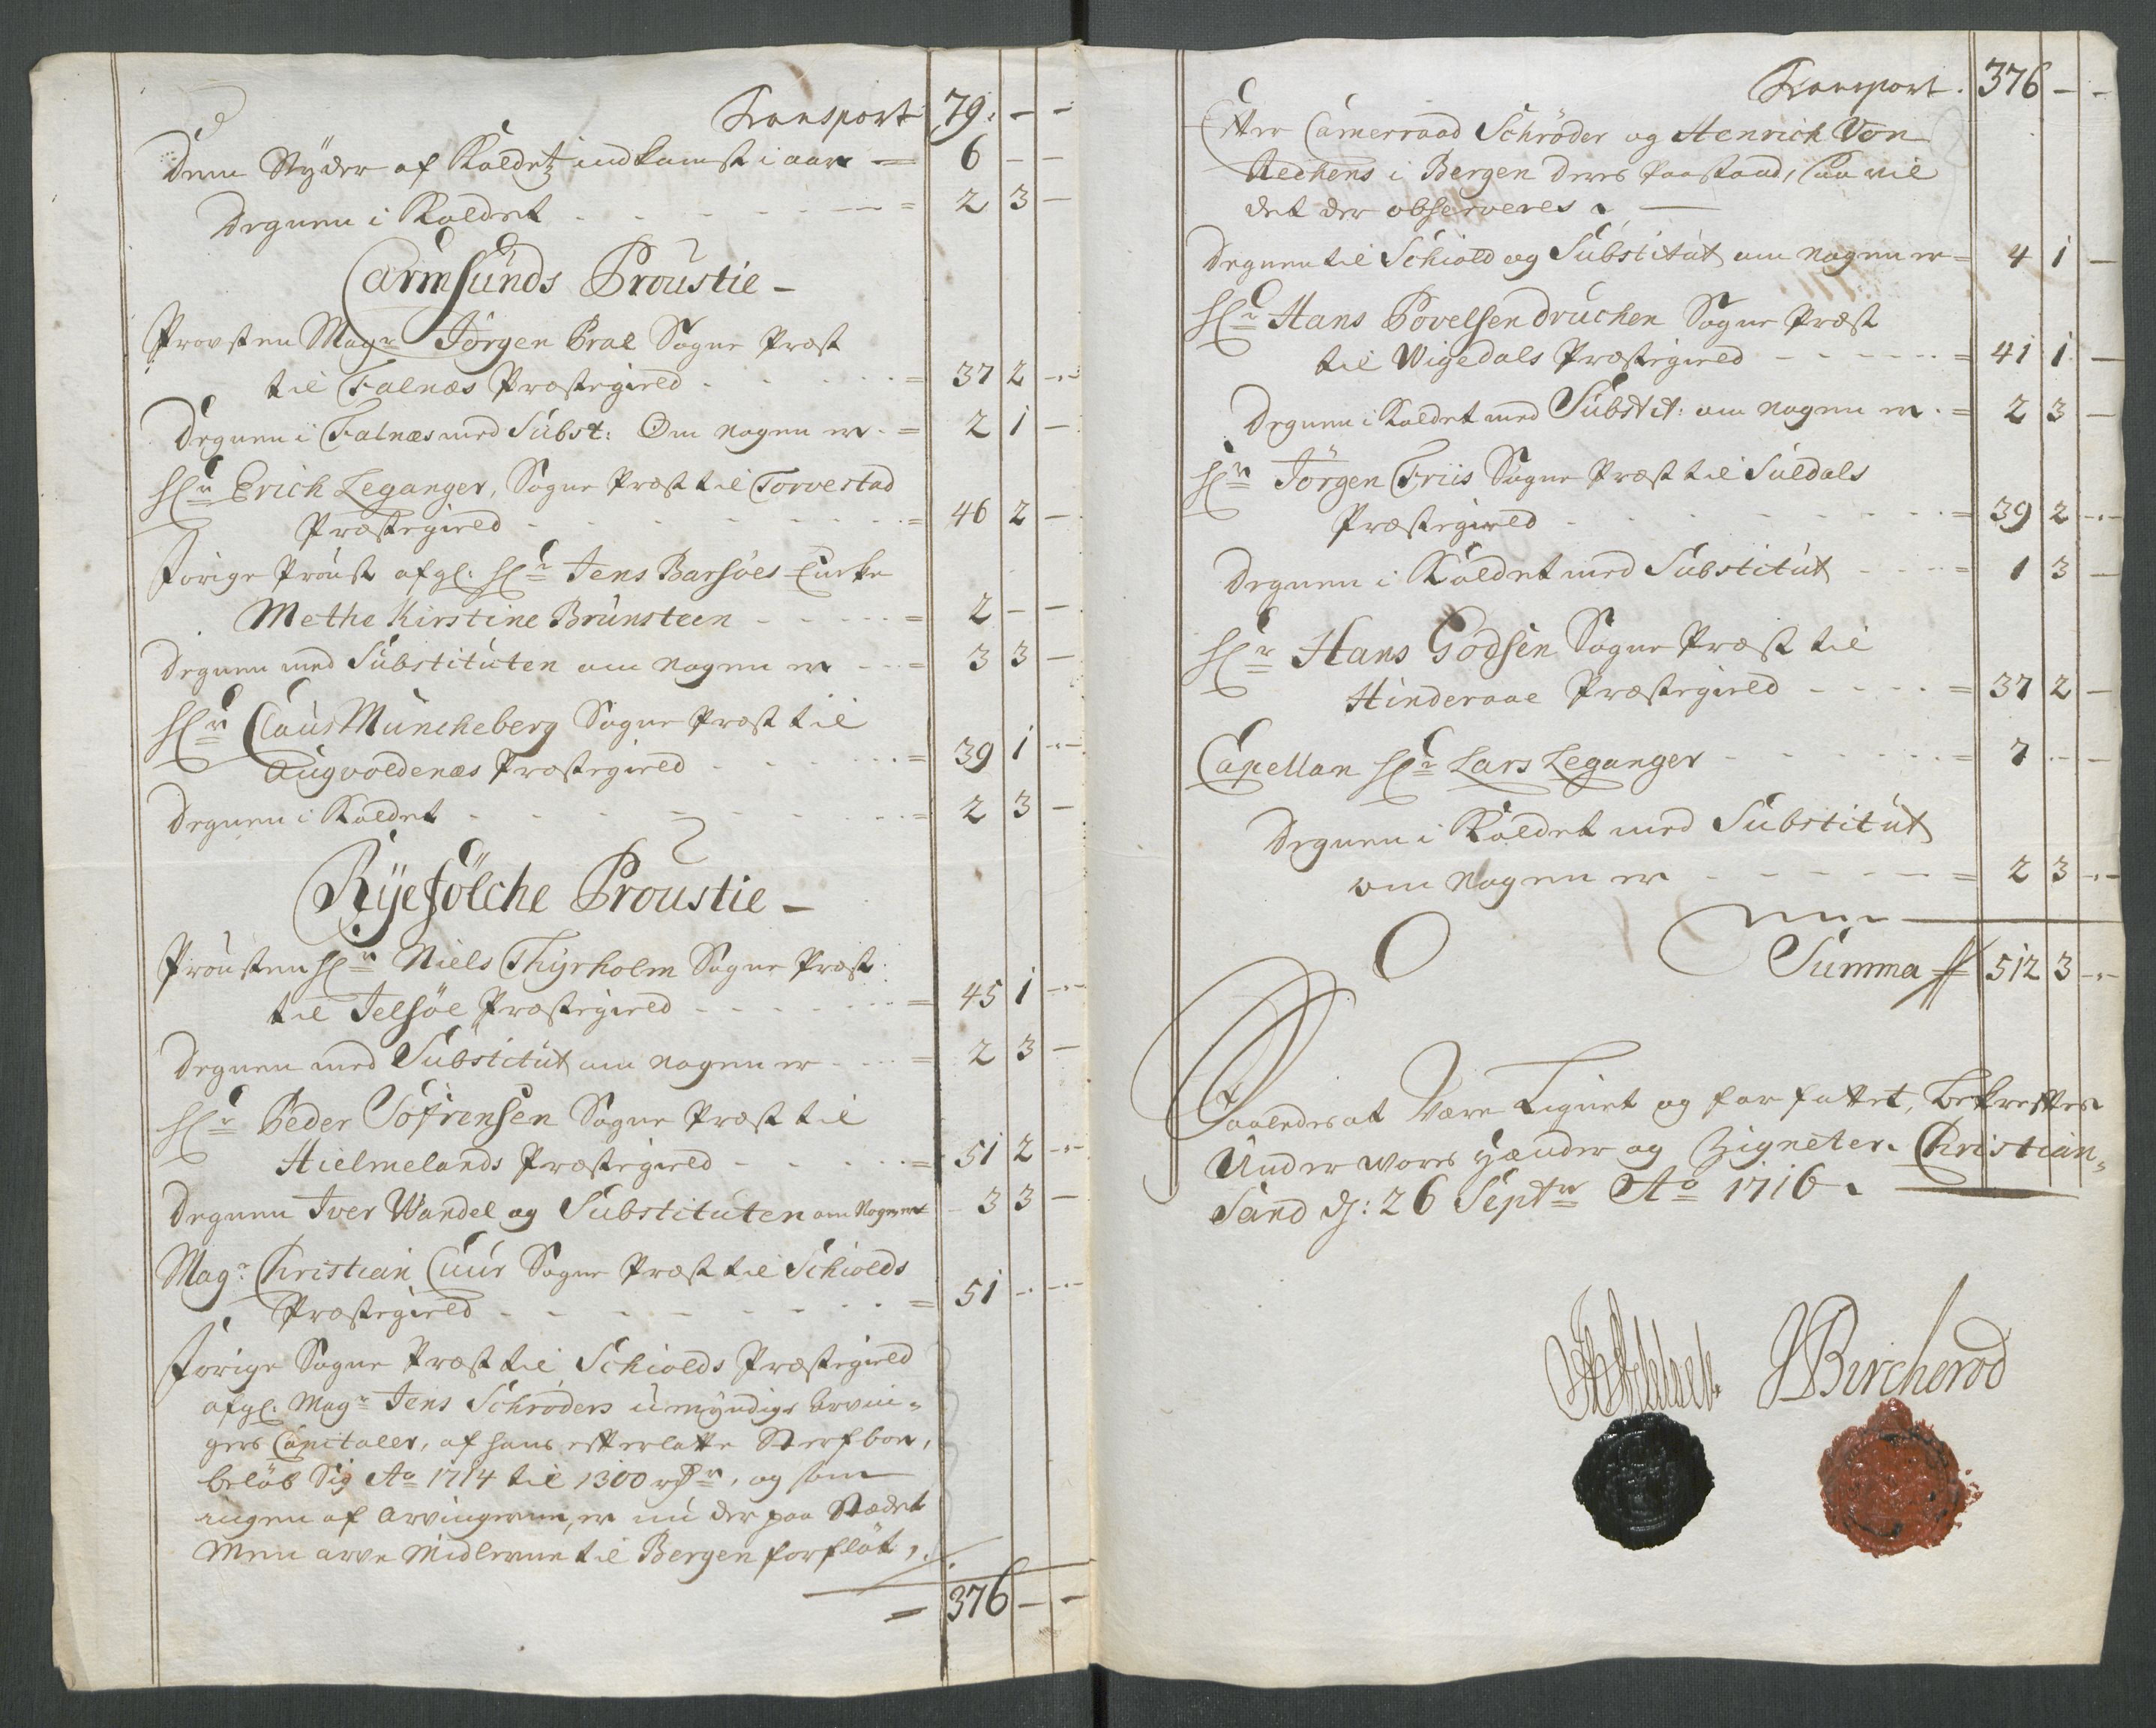 Transport 79. — —
Dem Nyder af Kaldetz indkomst i aar = 6 — —
Degnen i Kaldet = 2 3 —
Carmsunds Proustie –
Provsten Magr Jörgen Pral Sogne Præst
til Falnæs Præstegield = 37 2 —
Degnen i Falnæs med Subst: Om nogen er = 2 1 —
Hr Erich Leganger, Sogne Præst til Torvestad
Præstegield = 46 2 —
Forige Proust afgl: Hr Jens Barsöes Encke
Methe Kirstine Brunsteen = 2 — —
Degnen med Substituten om nogen er = 3 3 —
Hr Claus Müncheberg Sogne Præst til
Augvoldenæs Præstegield = 39 1 —
Degnen i Kaldet = 2 3 —
Ryefölche Proustie –
Prousten Hr Niels Thyrholm Sogne Præst
til Jelsöe Præstegield = 45 1 —
Degnen med Substitut om nogen er = 2 3 —
Hr Peder Söfrensen Sogne Præst til
Hielmelands Præstegield = 51 2 —
Degnen Iver Wandel og Substituten om Nogen er 3 3 —
Magr Christian Cuur Sogne Præst til Schiolds
Præstegield = 51 — —
Forige Sogne Præst til Schiolds Præstegield
afgl. Magr Jens Schröders umyndige Arvin=
gers Capitaler, af hans efterlatte Sterfboe,
beløb Sig Ao 1714 til 1300 rdr, og som
ingen af Arvingerne, er nu der paa Stædet
Men arve Midlerne til Bergen forfløt,
= 376 — —
Transport. 376 — —
Efter Camerraad Schröder og Henrich Von
Redhens i Bergen deres Paastand, saa vil
det der observeres.
Degnen til Schiold og Substitut om nogen er = 4 1 —
Hr Hans Povelsen Druchen Sogne Præst
til Wigedals Præstegield = 41 1 —
Degnen i Kaldet med Substit: om nogen er. = 2 3 —
Hr Jörgen Friis Sogne Præst til Suldals
Præstegield = 39 2 —
Degnen i Kaldet med Substitut = 1 3 —
Hr Hans Godsen Sogne Præst til
Hinderaae Præstegield = 37 2 —
Capellan Hr Lars Leganger = 7 — —
Degnen i Kaldet med Substitut
om Nogen er = 2 3 —
Summa 512 3 —
Saaledes at Være Lignet og forfattet, bekreftes
Under Vores Hænder og Zigneter. Christian=
Sand d: 26 Septr Ao 1716.
J Bircherod